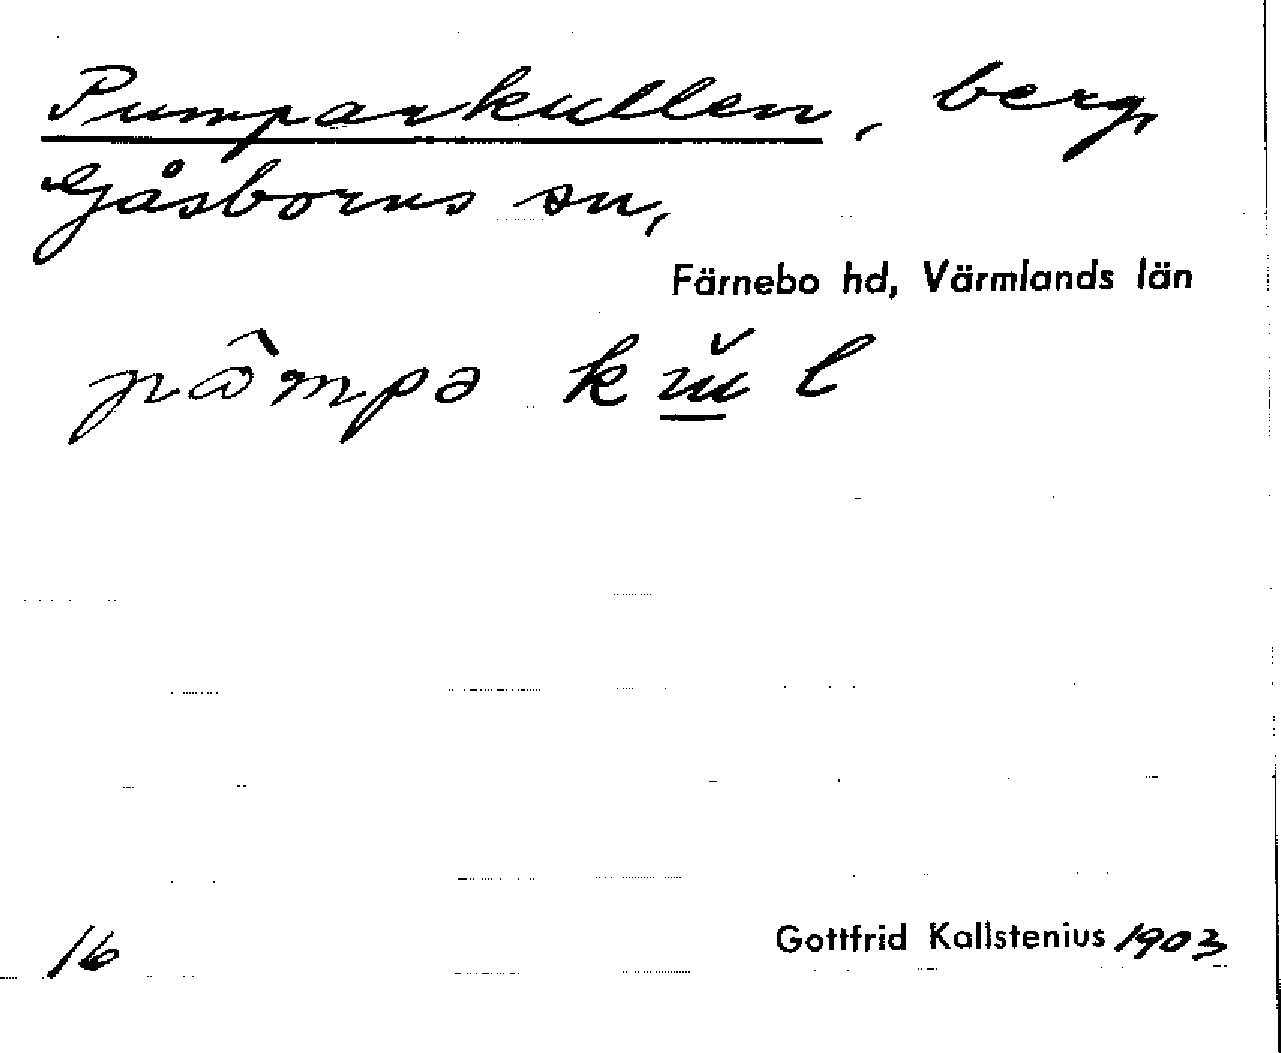 Pumparkullen, berg,
Gåsborns sn,
Färnebo hd, Värmlands län
16
Gottfrid Kallstenius 1903